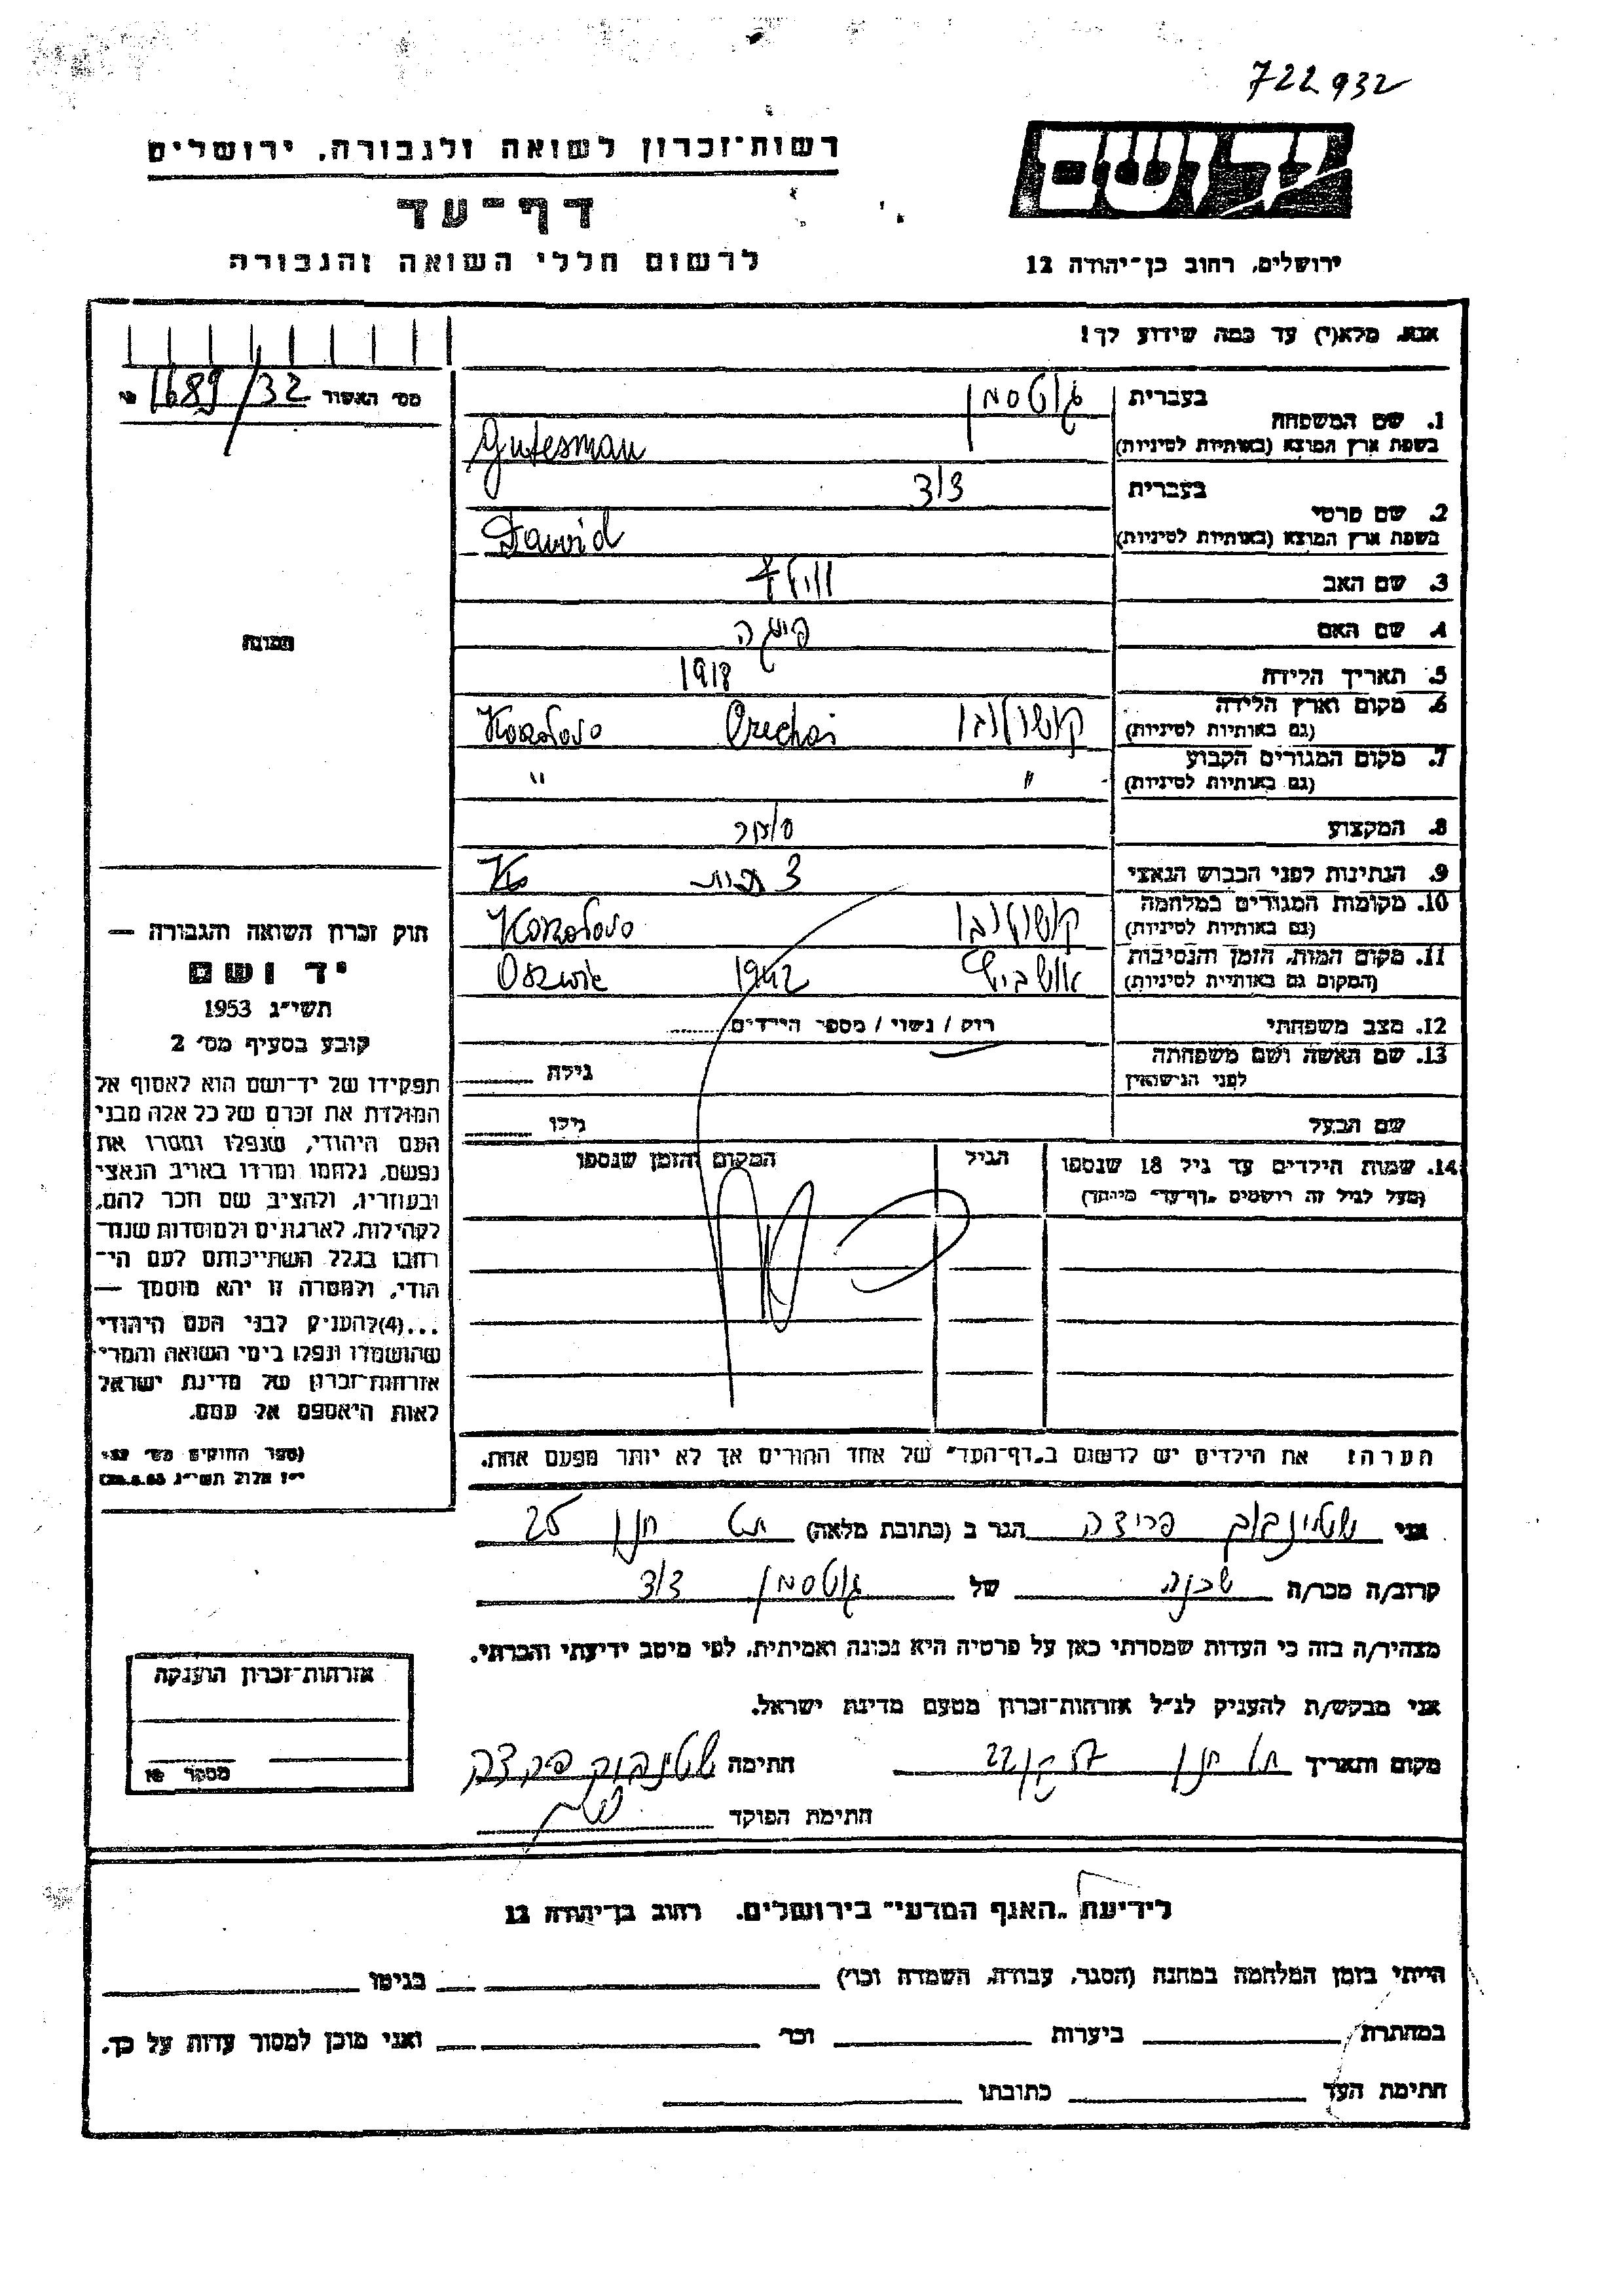 722932
רשות־זכרון לשואה ולגבורה, ירושלים
יד ושם
דף־עד
לרשום חללי השואה והגבורה
ירושלים, רחוב בן־יהודה 12
אנא, מלא(י) עד כמה שידוע לך!
מס׳ האשור 1689/32
1. שם המשפחה בעברית גוטסמן
בשפת ארץ המוצא (באותיות לטיניות) Gutesman
2. שם פרטי בעברית דוד
בשפת ארץ המוצא (באותיות לטיניות) Dawid
3. שם האב וולף
4. שם האם פייגה
5. תאריך הלידה 1918
6. מקום וארץ הלידה קושולובו Orechai Koszolovo
(גם באותיות לטיניות)
7. מקום המגורים הקבוע " "
(גם באותיות לטיניות)
8. המקצוע סוחר
9. הנתינות לפני הכבוש הנאצי
10. מקומות המגורים במלחמה קושולובו Koszolovo
(גם באותיות לטיניות)
11. מקום המות, הזמן והנסיבות אושביץ 1942
(המקום גם באותיות לטיניות)
12. מצב משפחתי רווק / נשוי / מספר הילדים
13. שם האשה ושם משפחתה גילה
לפני הנישואין
שם הבעל גילו
14. שמות הילדים עד גיל 18 שנספו הגיל המקום והזמן שנספו
(מעל לגיל זה רושמים "דף־עד" מיוחד)
תמונה
חוק זכרון השואה והגבורה —
יד ושם
תשי״ג 1953
קובע בסעיף מס׳ 2
תפקידו של יד־ושם הוא לאסוף אל
המולדת את זכרם של כל אלה מבני
העם היהודי, שנפלו ומסרו את
נפשם, נלחמו ומרדו באויב הנאצי
ובעוזריו, ולהציב שם וזכר להם,
לקהילות, לארגונים ולמוסדות שנח־
רבו בגלל השתייכותם לעם הי־
הודי, ולמטרה זו יהא מוסמך —
...(4)להעניק לבני העם היהודי
שהושמדו ונפלו בימי השואה והמרי
אזרחות־זכרון של מדינת ישראל
לאות היאספם אל עמם.
(ספר החוקים מס׳ 132,
י״ז אלול תשי״ג 28.8.53)
הערה: את הילדים יש לרשום ב„דף־העד" של אחד ההורים אך לא יותר מפעם אחת.
אני שטינבוק פרידה הגר ב (כתובת מלאה) תל חנן 25
קרוב/ה מכר/ה שכנה של גוטסמן דוד
מצהיר/ה בזה כי העדות שמסרתי כאן על פרטיה היא נכונה ואמיתית, לפי מיטב ידיעתי והכרתי.
אני מבקש/ת להעניק לנ״ל אזרחות־זכרון מטעם מדינת ישראל.
מקום ותאריך תל חנן חתימה שטינבוק פרידה
חתימת הפוקד
אזרחות־זכרון הוענקה
מספר
לידיעת „האגף המדעי" בירושלים. רחוב בן־יהודה 12
הייתי בזמן המלחמה במחנה (הסגר, עבודה, השמדה וכו׳) בגיטו
במחתרת ביערות וכו׳ ואני מוכן למסור עדות על כך.
חתימת העד כתובתו